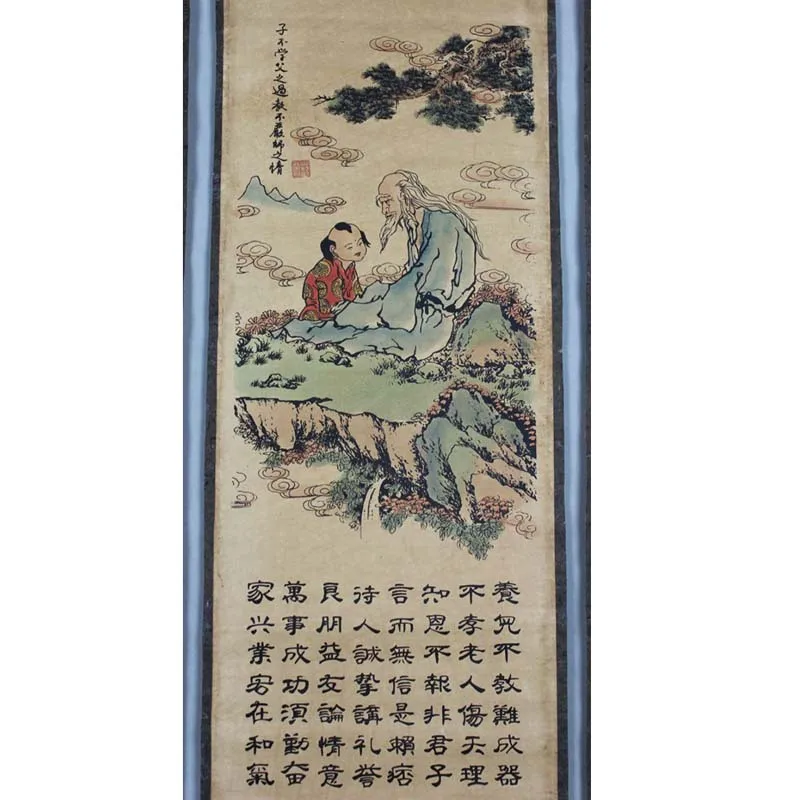 子不學父之過教不嚴師之惰
養兒不教難成器
不孝老人傷天理
知恩不報非君子
言而無信是賴痞
待人誠摯講礼誉
良朋益友論情意
萬事成功須勤奋
家兴業宏在和氣